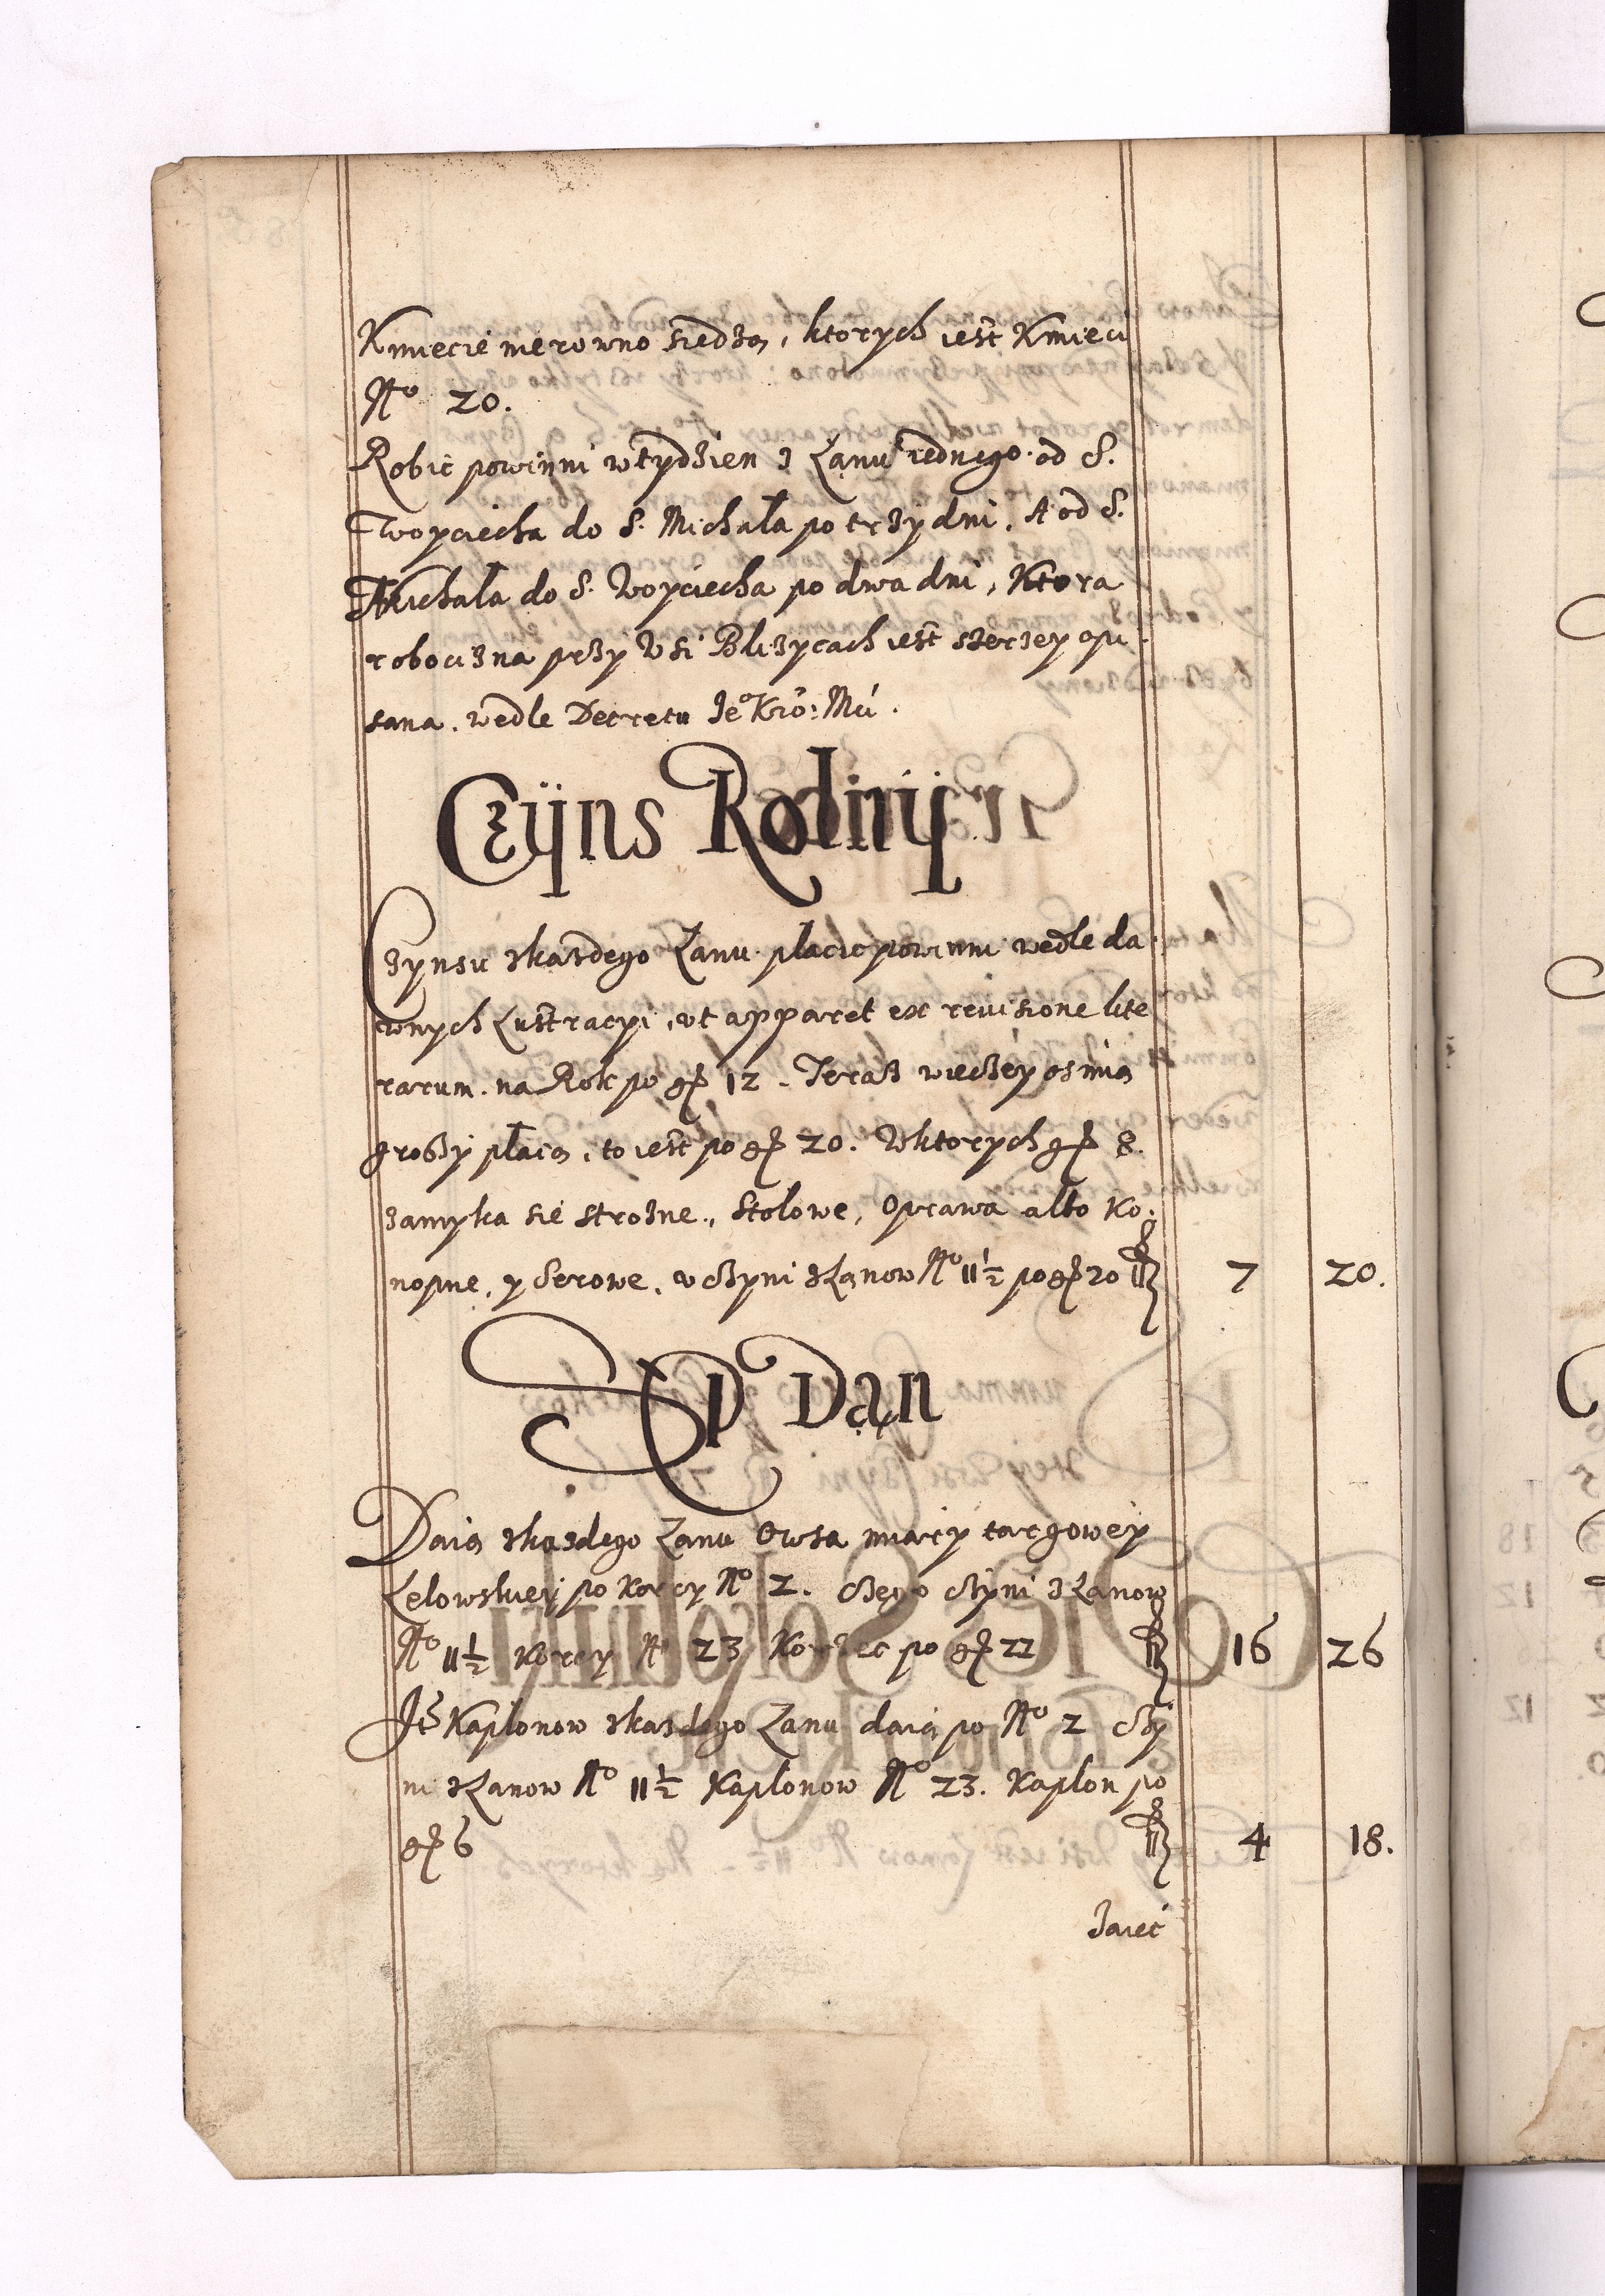 Kmiecie nierowno siedzą, ktorych iest Kmieci
No 20.
Robić powinni w tydzien z Łanu iednego od S.
Woyciecha do S. Michała po trzy dni. A od S.
Michała do S. Woyciecha po dwa dni, Ktora
robocizna przy Wsi Bliżycach iest szerzey opi
sana. wedle Decretu Je° Kro: Mći.
Czÿns Rolnÿ
Czynsu zkazdego Łanu płacić powinni wedle da
wnych Lustracyi, vt apparet ex reuisione lite
rarum. na Rok po gr 12. Teraz wieczey osmią
groszy płacą, to iest po gr 20. Wktorych gr 8.
zamyka sie strozne, Stolowe, Oprawa albo Ko:
nopne, y Serowe, vczyni zŁanow No 11½ po gr 20 fl 7 20.
Sęp Dań
Daią zkazdego Łanu Owsa miary targowey
Lelowskiey po Korcy No 2. czego czyni zŁanow
No 11½ Korcy No 23 Korzec po gr 22 fl 16 26
Ite Kapłonow zkazdego Łanu daią po No 2 czy
ni zŁanow No 11½ Kapłonow No 23. Kapłon po
gr 6 fl 4 18.
Jaiec